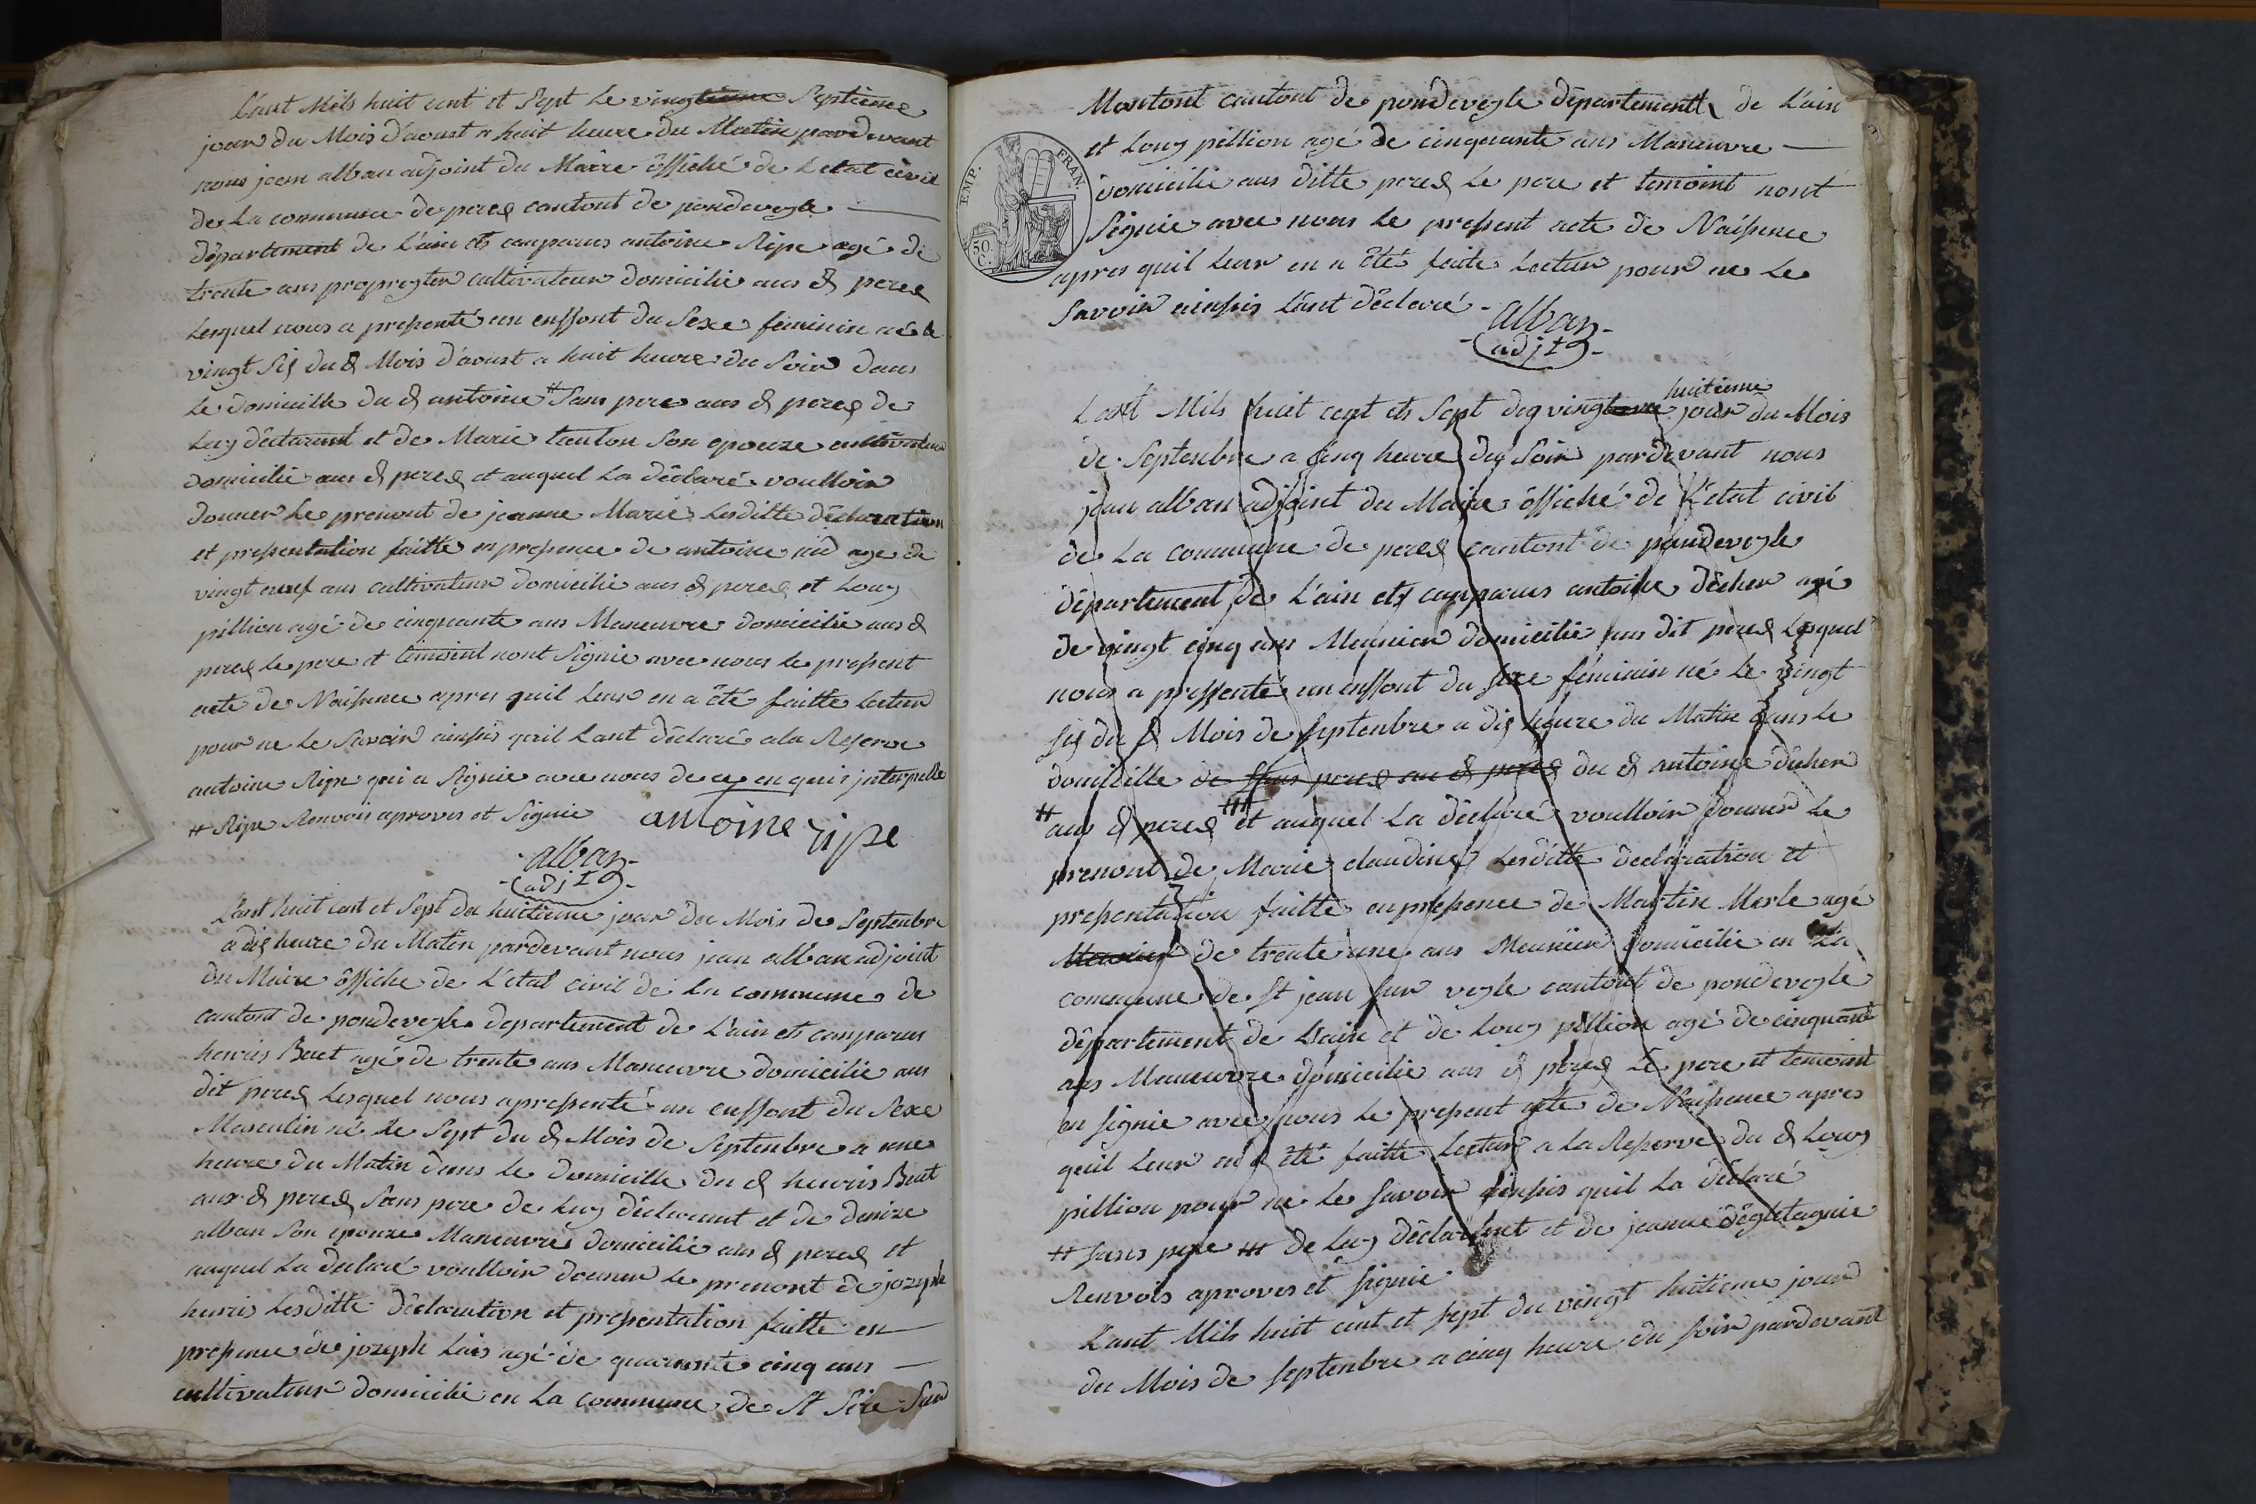 L'ant Mils huit cent et Sept Le vingtieme Septieme
jour du Mois d'aoust a huit heure du Matin pardevant
nous jean alban adjoint du Maire öffiché de Letat civil
de La commune de perex cantont de pondevegle
département de L'ain ets conparus antoine Ripe agé de
trente ans propregter cultivateur domicilie aus d perex
Lesquel nous a presenté un enffont du Sexe féminin né le
vingt Six du d Mois d'aoust a huit heure du Soir dans
Le domicille du d antoine # Sans pere aus d perex de
Luy déclarant et de Marie tanton Son epouze cultivateur
domicilié aus d perex et auquel La déclaré voulloir
donner Le prenont de jeanne Marie Lesditte déclaration
et presentation faitte en presence de antoine age de
vingt neuf ans cultivateur domicilie aus d perex et Louy
pillion agé de cinquante ans Maneuvre domicilie aus d
perex Le pere et temoint nont Signie avec nous Le present
acte de Naissence apres quil Leur en a été faitte Lecture
pour ne Le Savoir ainssis quil Lant déclaré ala Reserve
antoine Ripe qui a Signie avec nous de ce en quis jnterpellé
# Ripe Renvois aprouves et Signie antoine ripe
alban
adjt
L'ant huit cent et Sept du huitieme jour du Mois de Septenbre
a dix heure du Matin pardevant nous jean alban adjoint
du Maire öffiche de L'etat civil de La commune de
cantont de pondevegle departement de L'ain ets conparus
henris Buet agé de trente ans Maneuvre domicilie aus
dit perex Lesquel nous apressenté un enffont du Sexe
Masculin né Le Sept du d Mois de Septenbre a une
heure du Matin dans Le domicille du d henris Buet
aus d perex Sans pere de Luy déclarant et de denize
alban Son epouze Maneuvre domicilie aus d perex et
auquel La déclaré voulloir donner Le prenont de jozeph
henris Lesditte déclaration et presentation faitte en
presence de jozeph Lais agé de quarante cinq ans
cultivateur domicilie en La commune de St Sire Sur
EMP. FRAN.
50 C.
Montont cantont de pondevegle département de L'ain
et Louy pillion agé de cinquante ans Maneuvre
domicilie aus ditte perex Le pere et temoint nont
Signie avec nous Le pressent acte de Naissence
apres quil Leur en a été faite Lecture pour ne Le
Savoir ainssis Lânt déclaré
alban
adjt
huitieme
L'ant Mils huit cent ets Sept dex vingt jour du Mois
de Septenbre a Cinq heure du Soir pardevant nous
jean alban adjoint du Maire öffiché de L'etat civil
de La commune de perex cantont de pondevegle
département de L'ain ets conparus antoine dêcher agé
de vingt cinq ans Meunier domicilie aus dit perex Lesquel
nous a pressenté un enffont du sexe féminin né Le vingt
six du d Mois de septenbre a dix heure du Matin dans Le
domicille de sans perex au d perex du d antoine dêcher
# aus d perex ## et auquel La déclaré voulloir donner Le
prenont de Marie claudine Lesditte declaration et
presentation faitte en presence de Martin Merle agé
Meunier de trente une ans Meunier domicilie en La
commune de St jean sur vegle cantont de pondevegle
département de L'ain et de Louy pillion agé de cinquant
ans Maneuvre domicilie aus d perex Le pere et temoint
on signie avec nous Le present acte de Naissence apres
quil Leur en a été faitte Lecture a La Reserve du d Louy
pillion pour ne Le savoir ainssis quil La déclaré
# sans pere ## de Luy déclarant et de jeanne dégletagnie
Renvois aprouves et signie
L'ant Mils huit cent et sept du vingt huitieme jour
du Mois de septenbre a cinq heure du soir pardevant